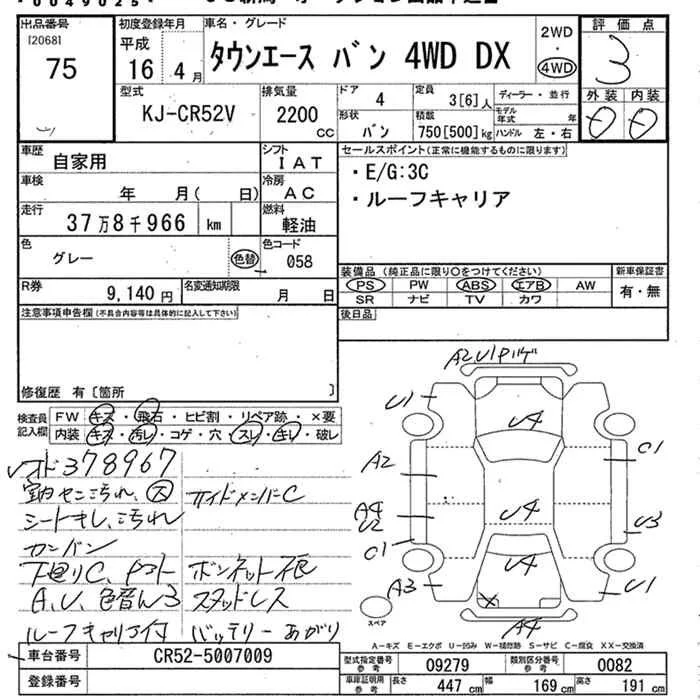 出品番号
[2068]
75
初度登録年月
平成
16 4 月
車名・グレード
タウンエース バン 4WD DX
2WD
・
4WD
評価点
3
型式
KJ-CR52V
排気量
2200
CC
ドア
4
定員
3[6]人
ディーラー・並行
モデル年式
年
形状
バン
積載
750[500]kg
ハンドル 左・右
外装 内装
車歴
自家用
シフト
IAT
セールスポイント(正常に機能するものに限ります)
・E/G:3C
・ルーフキャリア
車検
年 月( 日)
冷房
AC
走行
37万8千966 km
燃料
軽油
色
グレー
色替
色コード
058
R券
9,140 円
名変通知期限
月 日
装備品 (純正品に限り○をつけてください)
PS PW ABS エアB AW
SR ナビ TV カワ
新車保証書
有・無
注意事項申告欄(不具合内容等は具体的に記入して下さい)
後日品
修復歴 有〔箇所 〕
検査員記入欄
FW キズ・飛石・ヒビ割・リペア跡・×要
内装 キズ・汚レ・コゲ・穴・スレ・キレ・破レ
378967
シートキレ、汚れ
カンバン
ボンネット
A、U、色替
スタッドレス
ルーフキャリア付
バッテリーあがり
A2 U1
U1
U4
C1
A2
A4
U2
U4
U3
C1
U4
A3
U1
A4
スペア
A－キズ E－エクボ U－凹み W－補修跡 S－サビ C－腐食 XX－交換済
車台番号
CR52-5007009
登録番号
型式指定番号
参考
09279
類別区分番号
参考
0082
車庫証明用
参考
長さ
447 cm
幅
169 cm
高さ
191 cm